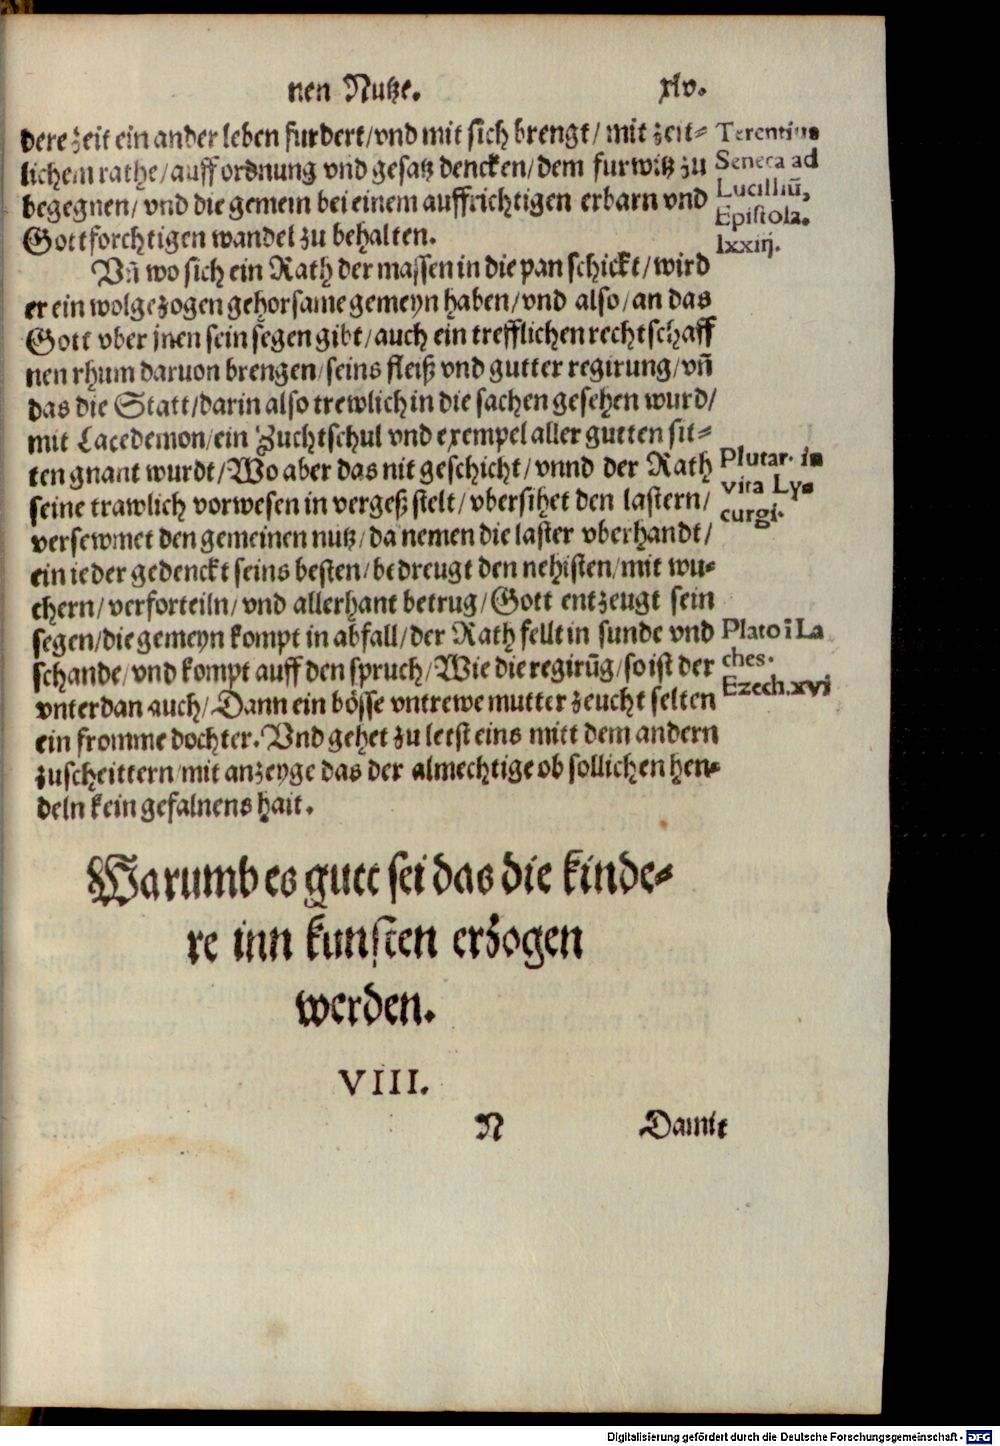 nen Nutze. xlv.
dere zeit ein ander leben furdert/vnd mit sich brengt/ mit zeit⸗
lichem rathe/auff ordnung vnd gesatz dencken/dem furwitz zu
begegnen/ vnd die gemein bei einem auffrichtigen erbarn vnd
Gottforchtigen wandel zu behalten.
Terentius
Seneca ad
Lucilliū,
Epistola.
lxxiij.
Vn̄ wo sich ein Rath der massen in die pan schickt/ wird
er ein wolgezogen gehorsame gemeyn haben/vnd also/an das
Gott vber jnen sein segen gibt/auch ein trefflichen rechtschaff
nen rhum daruon brengen/seins fleiß vnd gutter regirung/vn̄
das die Statt/darin also trewlich in die sachen gesehen wurd/
mit Lacedemon/ein Zuchtschul vnd exempel aller gutten sit⸗
ten gnant wurdt/Wo aber das nit geschicht/vnnd der Rath
seine trawlich vorwesen in vergeß stelt/vbersihet den lastern/
versewmet den gemeinen nutz/da nemen die laster vberhandt/
ein ieder gedenckt seins besten/bedreugt den nehisten/mit wu⸗
chern/verforteiln/vnd allerhant betrug/Gott entzeugt sein
segen/die gemeyn kompt in abfall/der Rath fellt in sunde vnd
schande/vnd kompt auff den spruch/Wie die regirūg/so ist der
vnterdan auch/Dann ein bösse vntrewe mutter zeucht selten
ein fromme dochter. Vnd gehet zu letst eins mitt dem andern
zuscheittern/mit anzeyge das der almechtige ob sollichen hen⸗
deln kein gefalnens hait.
Plutar. in
vita Ly⸗
curgi.
Plato ī La
ches.
Ezech.xvj
Warumb es gutt sei das die kinde⸗
re inn kunsten erzogen
werden.
VIII.
N Damit
Digitalisierung gefördert durch die Deutsche Forschungsgemeinschaft - DFG